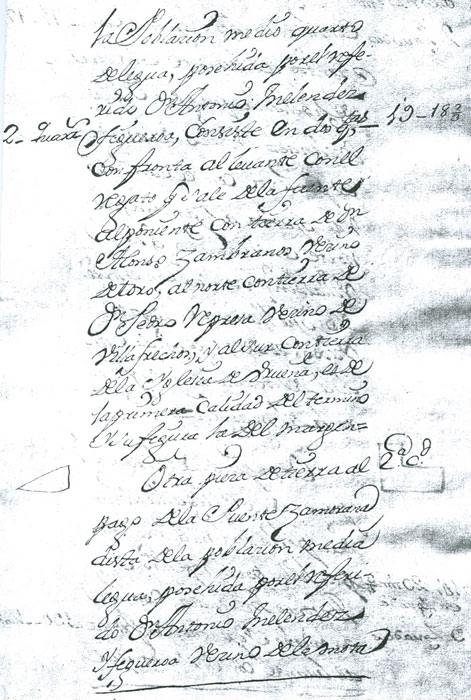 la Poblazion medio quarto
de legua, posehida por el refe-
rido Dn Antonio Melendez
2 - quarta Figueroa, Consiste en dos qtas 19 - 18
confronta al levante con el
regato q sale de la fuente
al poniente con tierra de Dn
Alonso Zambranos, vezino
de toro, al norte con tierra de
Dn Pedro Represa vezino de
Villa frechos, y al sur con tierra
de la Yglesia de Dueña, es de
la primera calidad del termino
su figura la del margen=
Otra pieza de tierra al 2ª Cd
pago de la Puente Zamorana
dista de la poblazion media
legua, posehida por el referi-
do Dn Antonio Melendez
y figueroa vezino de la mota